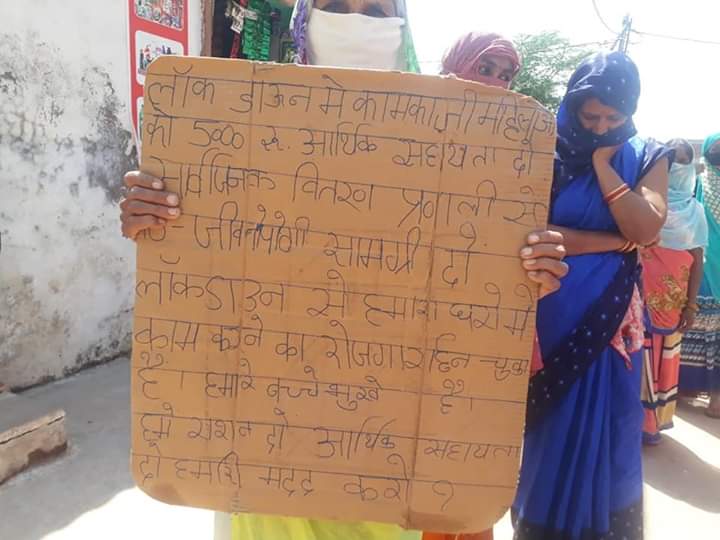 लॉक डाऊन मे कामकाजी महिलाओ
को 5000 रु. आर्थिक सहायता दो
सार्वजनिक वितरण प्रणाली से
जीवनोपयोगी सामग्री दो
लॉकडाउन से हमारा घरो मे
काम करने का रोजगार छिन चुका
है। हमारे बच्चे भुखे है।
हमे राशन दो आर्थिक सहायता
दो हमारी मदद करो ?